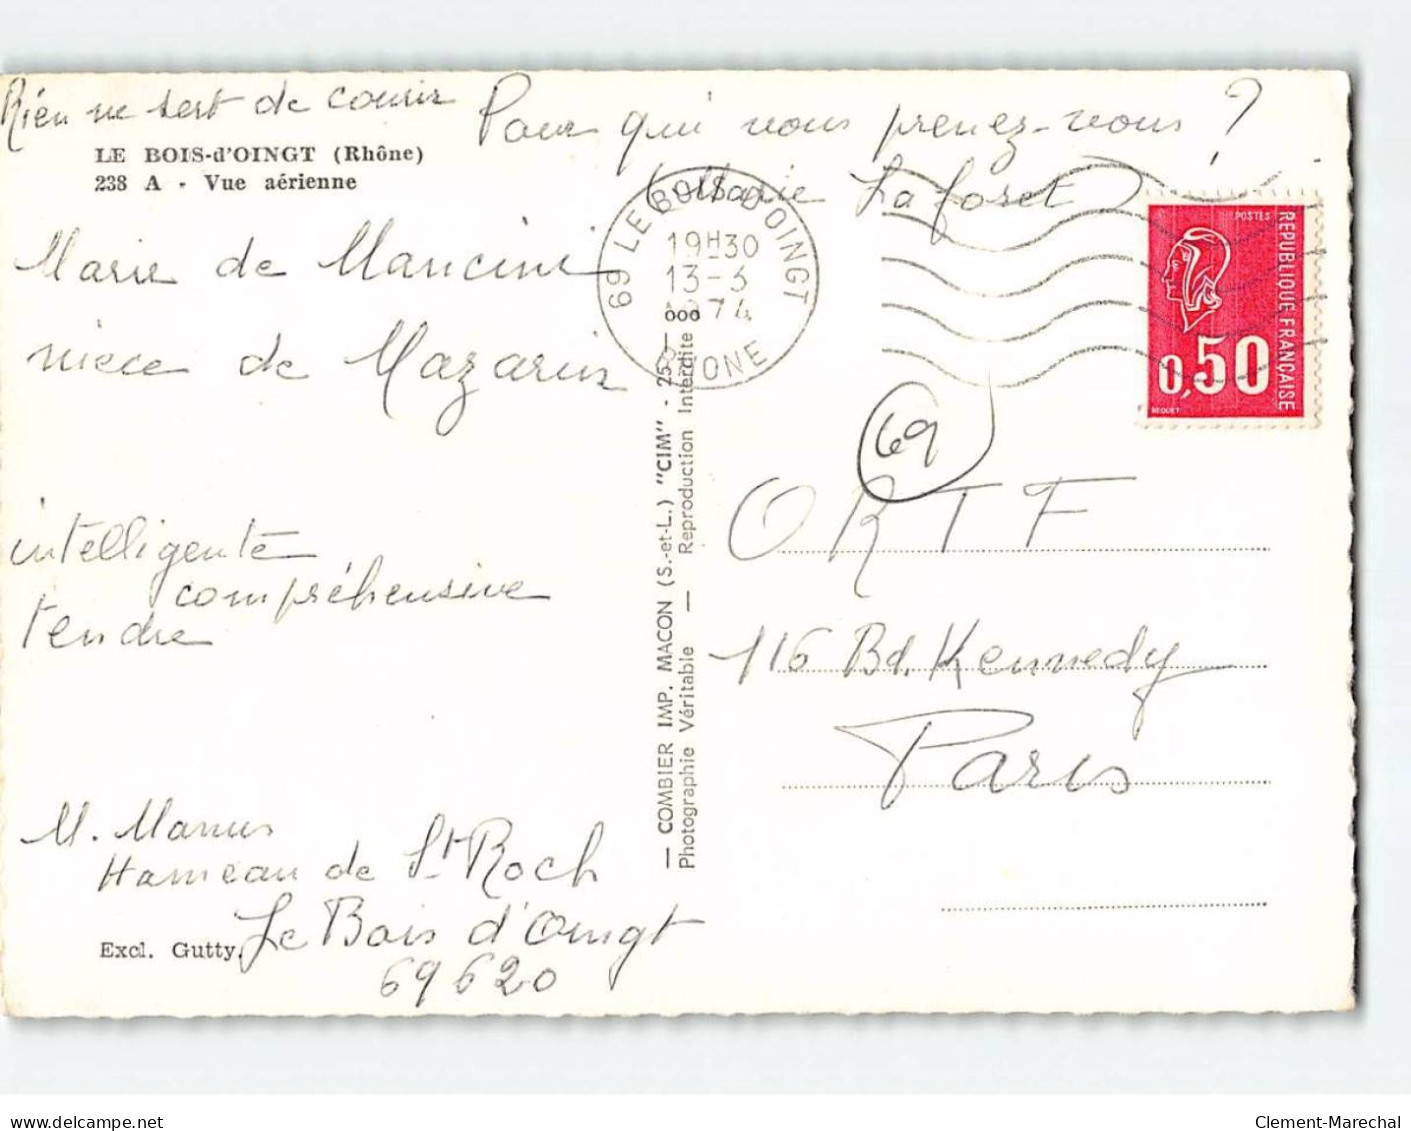 Rien ne sert de courir
Pour qui vous prenez-vous ?
(Marie Laforet)
LE BOIS-d'OINGT (Rhône)
238 A - Vue aérienne
69 LE BOIS D'OINGT
19H30
13-3
1974
RHONE
POSTES
REPUBLIQUE FRANÇAISE
0,50
BEQUET
Marie de Mancini
nièce de Mazarin
intelligente
compréhensive
tendre
M. Marius
Hameau de St Roch
Le Bois d'Oingt
69620
Excl. Gutty.
— COMBIER IMP. MACON (S.-et-L.) "CIM" - 25
Photographie Véritable — Reproduction Interdite
000
69
ORTF
116 Bd. Kennedy
Paris
www.delcampe.net
Clement-Marechal